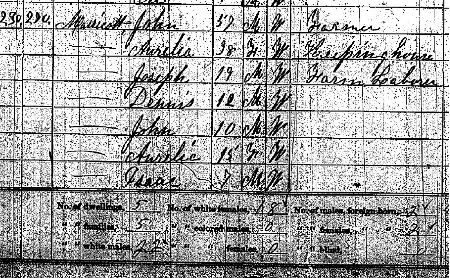 230 230 Marriott, John 57 M W Farmer
Aurelia 38 F W Keeping house
Joseph 19 M W Farm Laborer
Dennis 12 M W
John 10 M W
Aurelia 15 F W
Isaac 7 M W
No. of dwellings, 5 No. of white females, 18 No. of males, foreign born,
" " families, 5 " " colored males, 0 " " females, " "
" " white males, 22 " " " females, 0 " " blind,